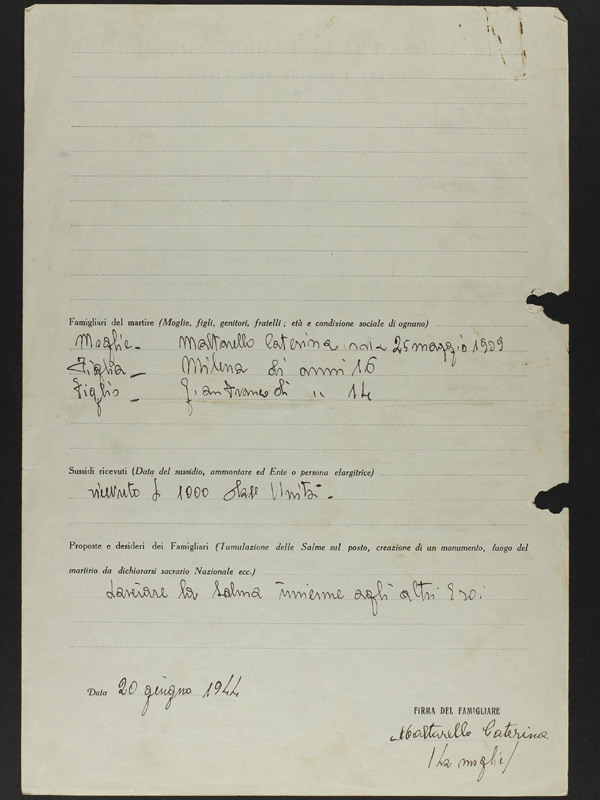 Famigliari del martire (Moglie, figli, genitori, fratelli; età e condizione sociale di ognuno)
Moglie - Mattarello Caterina nata 25 maggio 1909
Figlia - Milena di anni 16
Figlio - Gianfranco di " 14
Sussidi ricevuti (Data del sussidio, ammontare ed Ente o persona elargitrice)
ricevuto £ 1000 Unità -
Proposte e desideri dei Famigliari (Tumulazione delle Salme sul posto, creazione di un monumento, luogo del
martirio da dichiararsi sacrario Nazionale ecc.)
Lasciare la Salma insieme agli altri Eroi
Data 20 giugno 1944
FIRMA DEL FAMIGLIARE
Mattarello Caterina
(La moglie)